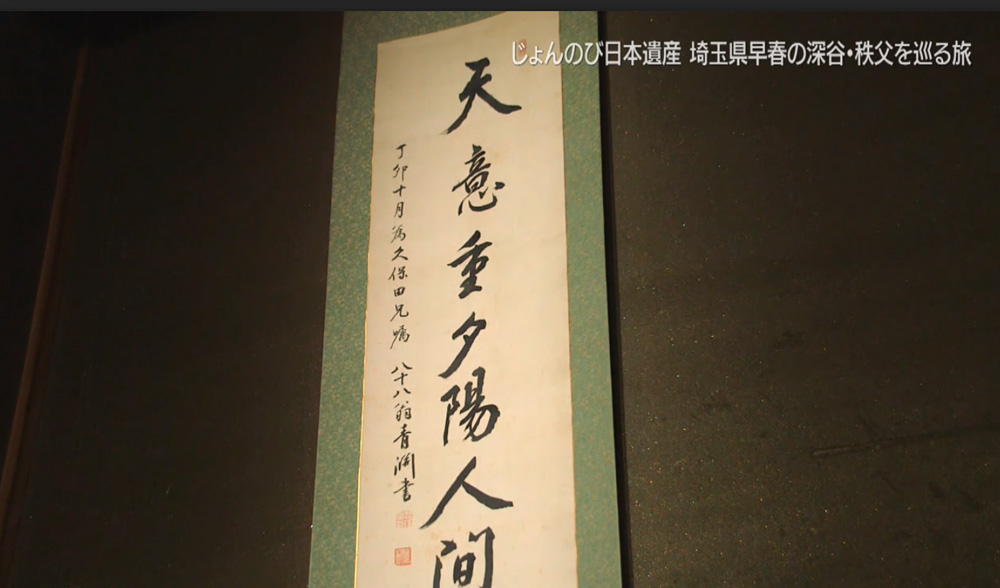 じょんのび日本遺産 埼玉県早春の深谷・秩父を巡る旅
天意重夕陽人間
丁卯十月為久保田兄嘱 八十八翁青淵書